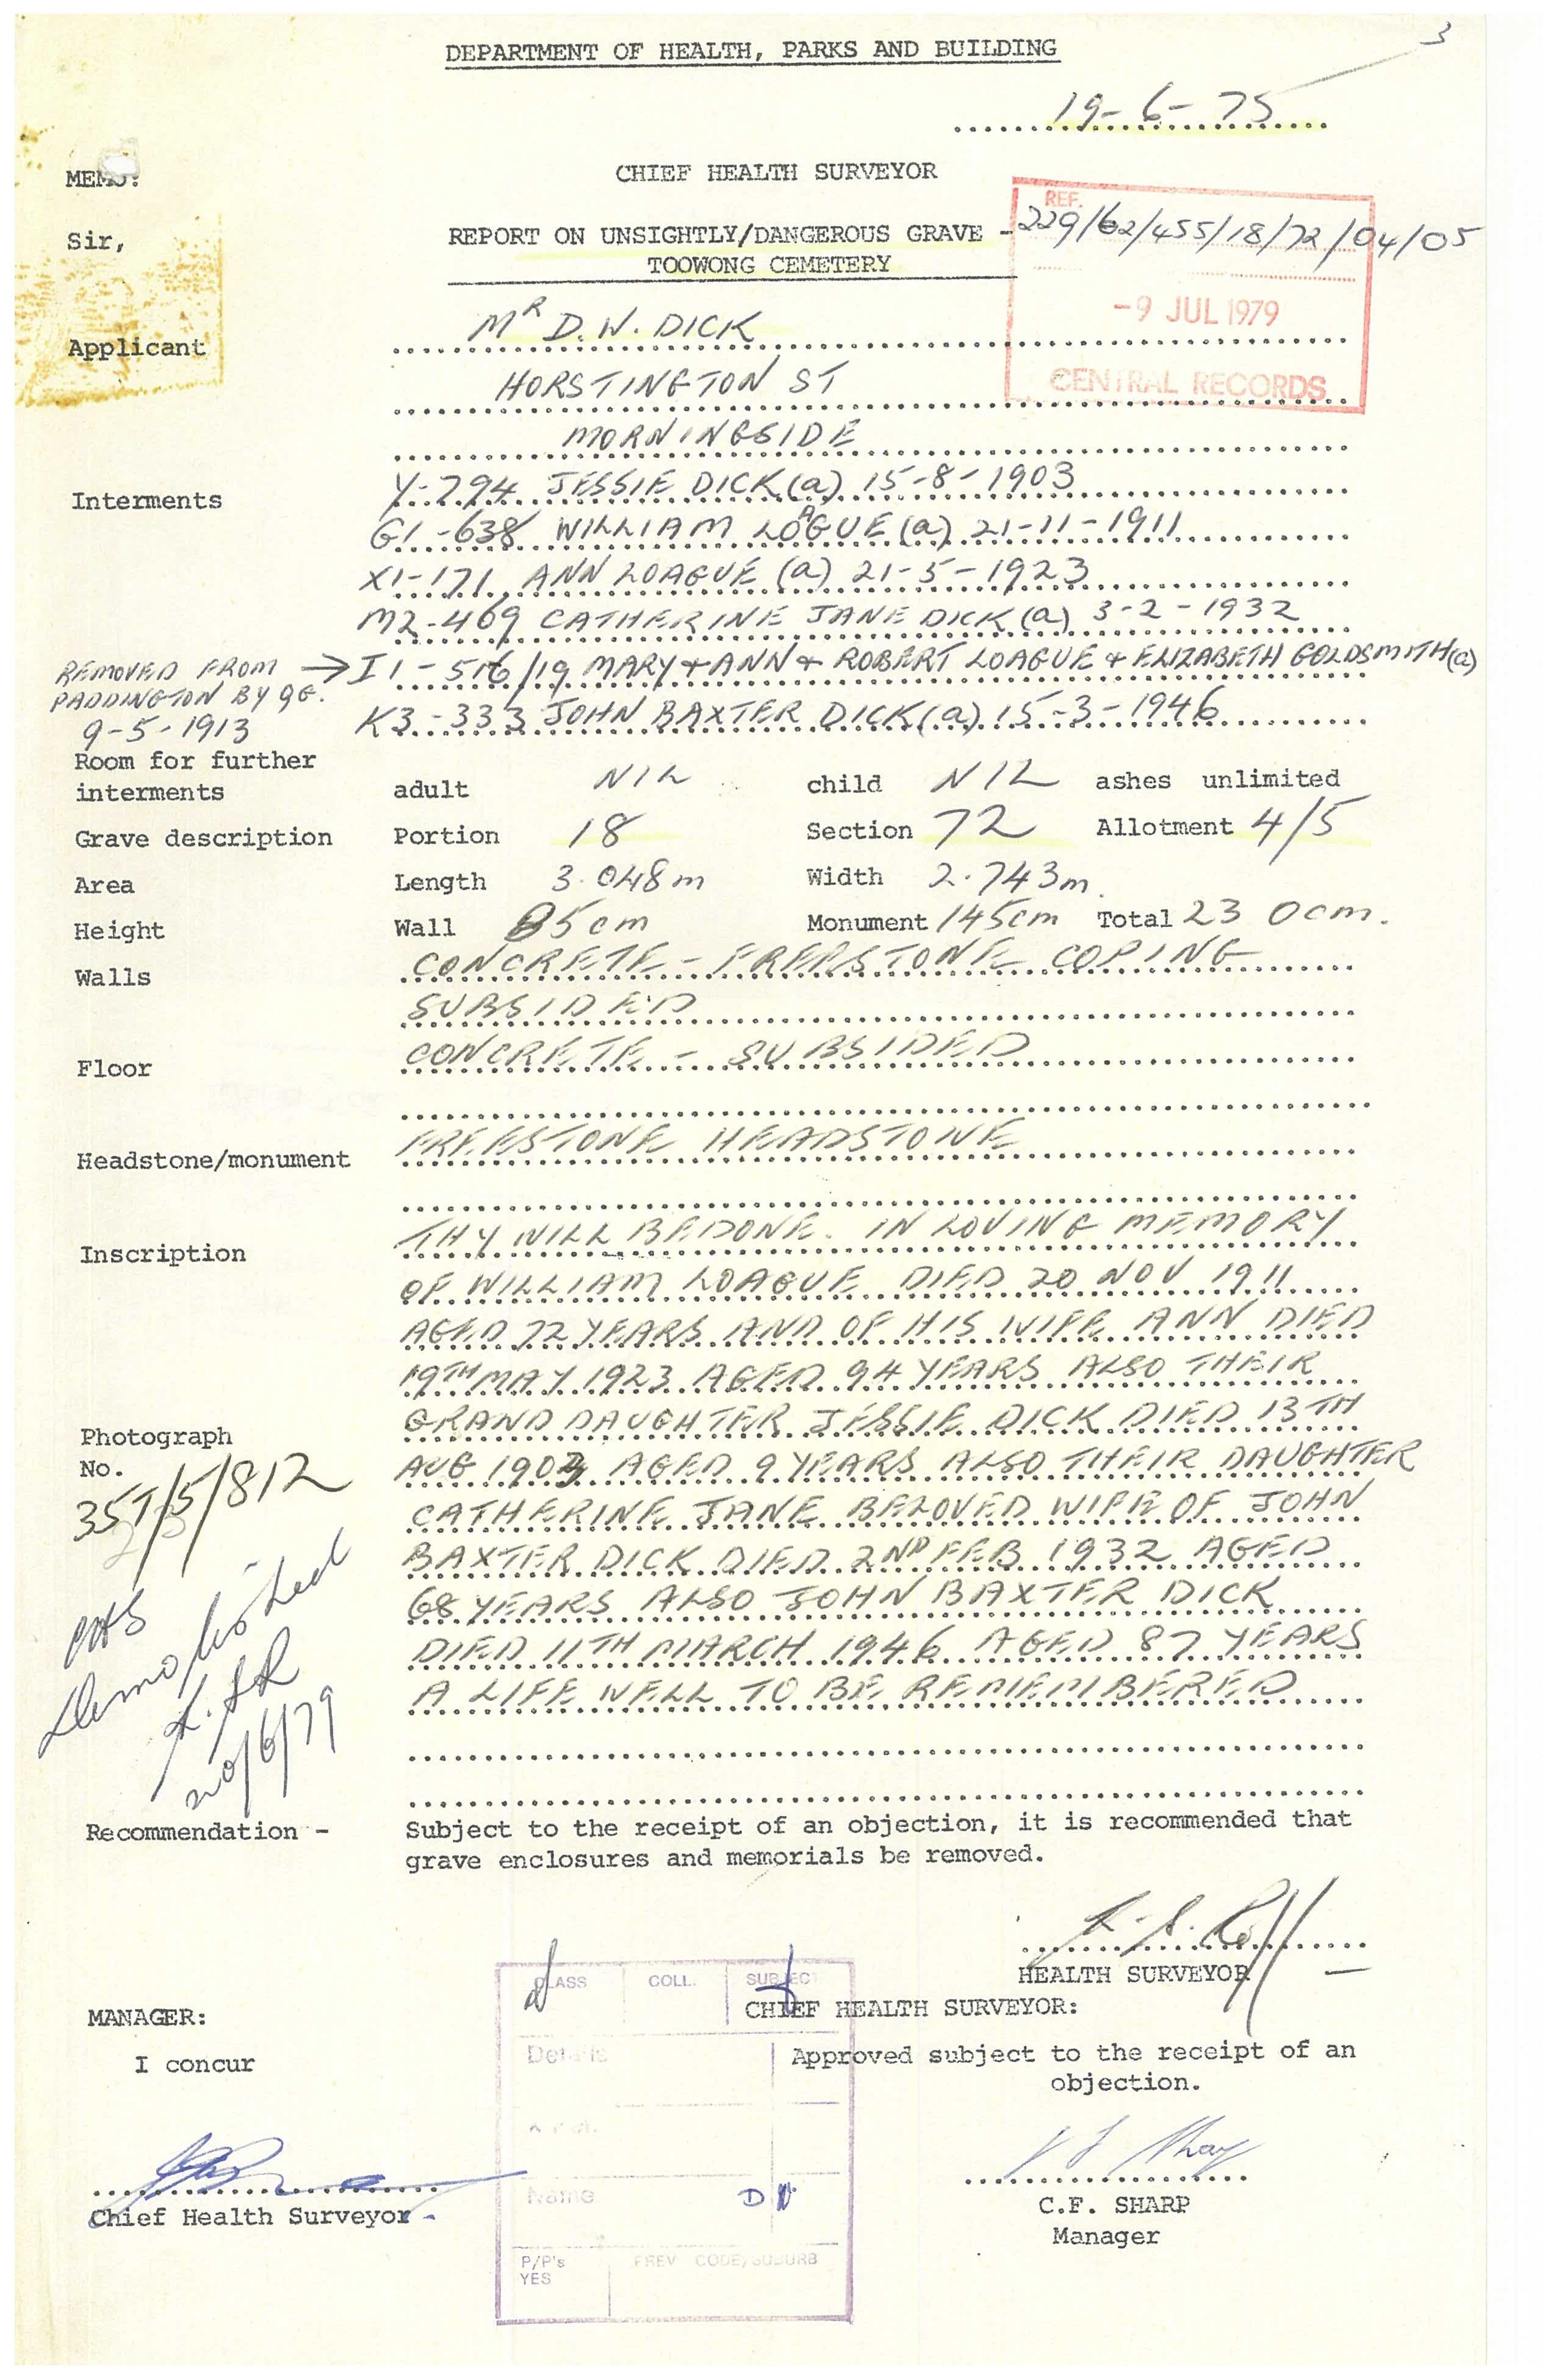 3
DEPARTMENT OF HEALTH, PARKS AND BUILDING
19-6-75
MEMO:
CHIEF HEALTH SURVEYOR
REF.
229/62/455/18/72/04/05
Sir,
REPORT ON UNSIGHTLY/DANGEROUS GRAVE -
TOOWONG CEMETERY
-9 JUL 1979
CENTRAL RECORDS
Applicant MR D.W. DICK
HORSTINGTON ST
MORNINGSIDE
Interments Y-794 JESSIE DICK (a) 15-8-1903
G1-638 WILLIAM LOAGUE (a) 21-11-1911
X1-171 ANN LOAGUE (a) 21-5-1923
M2-469 CATHERINE JANE DICK (a) 3-2-1932
REMOVED FROM → I1-516/19 MARY + ANN + ROBERT LOAGUE + ELIZABETH GOLDSMITH (a)
PADDINGTON BY QG.
9-5-1913 K3-333 JOHN BAXTER DICK (a) 15-3-1946
Room for further
interments adult NIL child NIL ashes unlimited
Grave description Portion 18 Section 72 Allotment 4/5
Area Length 3.048m Width 2.743m
Height Wall 85cm Monument 145cm Total 230cm.
Walls CONCRETE - FREESTONE COPING
SUBSIDED
Floor CONCRETE - SUBSIDED
Headstone/monument FREESTONE HEADSTONE
Inscription THY WILL BE DONE. IN LOVING MEMORY
OF WILLIAM LOAGUE DIED 20 NOV 1911
AGED 72 YEARS AND OF HIS WIFE ANN DIED
19TH MAY 1923 AGED 94 YEARS ALSO THEIR
GRAND DAUGHTER JESSIE DICK DIED 13TH
AUG 1903 AGED 9 YEARS ALSO THEIR DAUGHTER
CATHERINE JANE BELOVED WIFE OF JOHN
BAXTER DICK DIED 2ND FEB 1932 AGED
68 YEARS ALSO JOHN BAXTER DICK
DIED 11TH MARCH 1946 AGED 87 YEARS
A LIFE WELL TO BE REMEMBERED
Photograph
No.
35T/5/812
Demolished
20/6/79
Recommendation - Subject to the receipt of an objection, it is recommended that
grave enclosures and memorials be removed.
HEALTH SURVEYOR
CLASS COLL. SUBJECT
MANAGER:
CHIEF HEALTH SURVEYOR:
I concur
Details
Approved subject to the receipt of an
objection.
Name
Chief Health Surveyor
C.F. SHARP
Manager
P/P's PREV CODE/SUBURB
YES